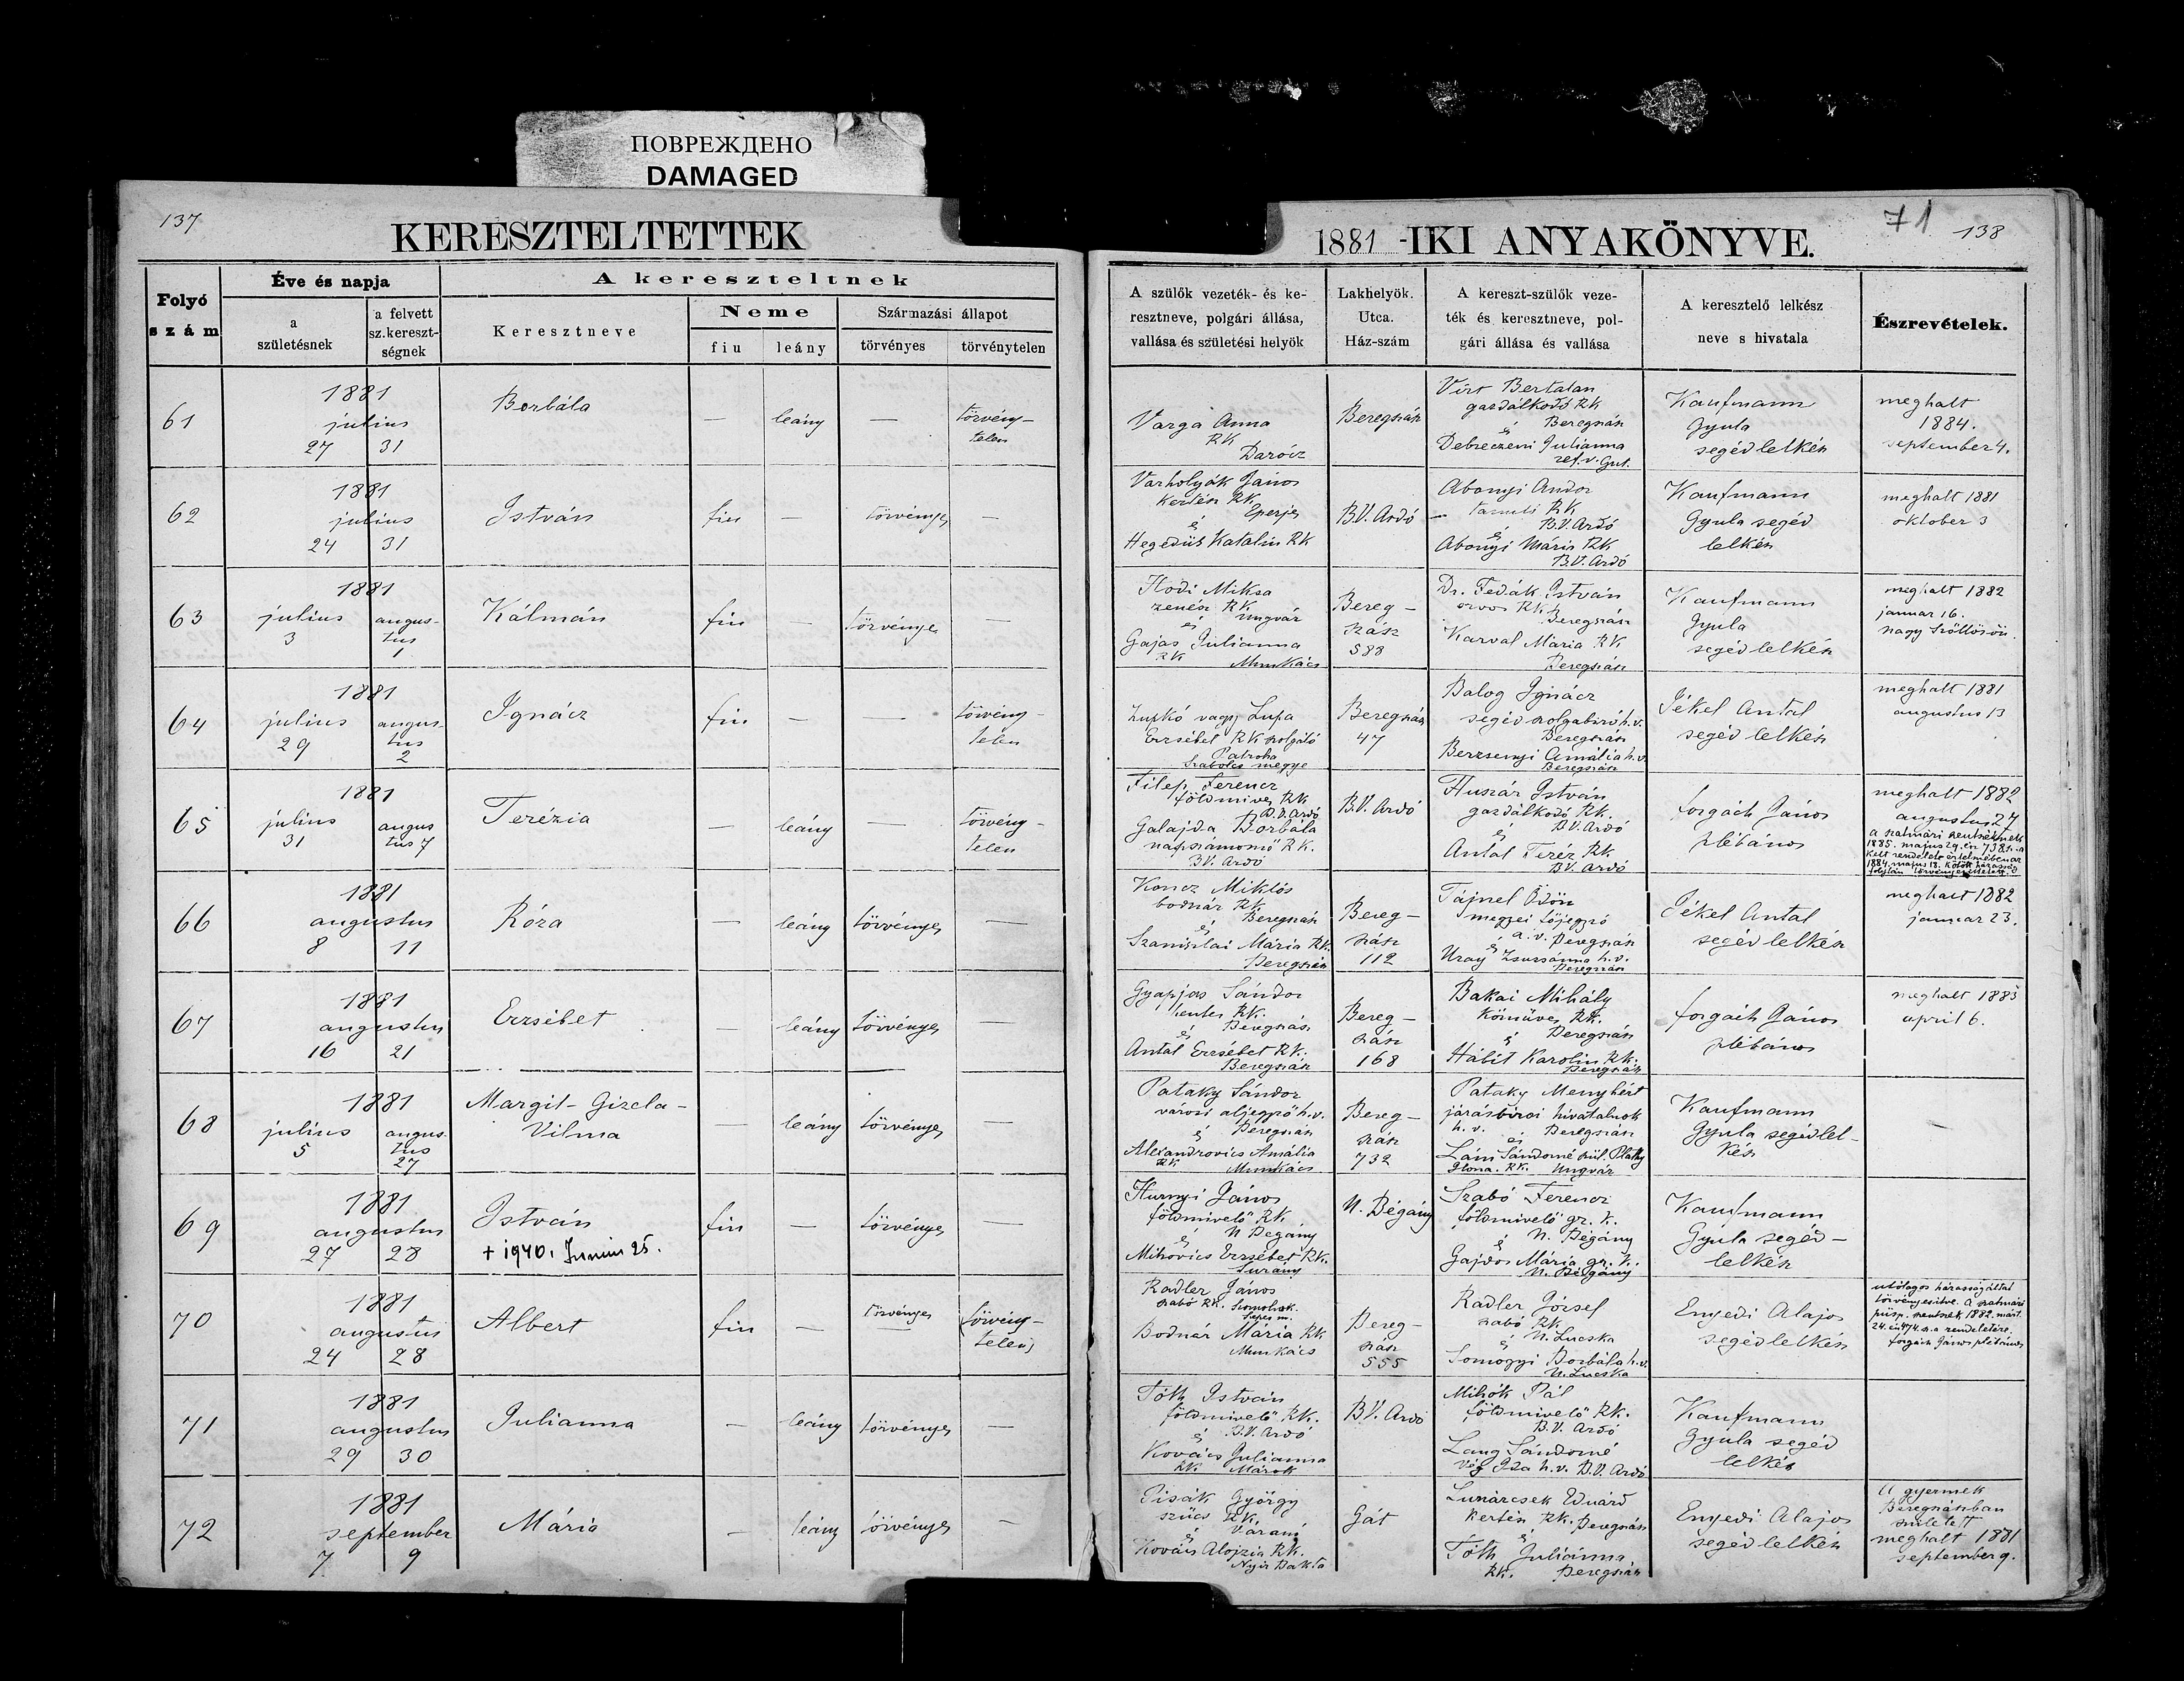 ПОВРЕЖДЕНО
DAMAGED
137
KERESZTELTETTEK
Folyó
szám
Éve és napja
a
születésnek
a felvett
sz.kereszt-
ségnek
A kereszteltnek
Keresztneve
Neme
fiu
leány
Származási állapot
törvényes
törvénytelen
1881 -IKI ANYAKÖNYVE.
71
138
A szülők vezeték- és ke-
resztneve, polgári állása,
vallása és születési helyök
Lakhelyök.
Utca.
Ház-szám
A kereszt-szülők veze-
ték és keresztneve, pol-
gári állása és vallása
A keresztelő lelkész
neve s hivatala
Észrevételek.
61
1881
julius
27 31
Borbála
—
leány
—
törvény-
telen
Varga Anna
RK
Darócz
Beregszász
Virt Bertalan
gazdálkodó RK
Beregszász
é
Debreczeni Julianna
ref. v. Gut.
Kaufmann
Gyula
segédlelkész
meghalt
1884.
september 4.
62
1881
julius
24 31
István
fiu
—
törvényes
—
Varholyák János
kertész RK
Eperjes
é
Hegedüs Katalin RK
B.V. Ardó
Abonyi Andor
tanuló RK
B.V. Ardó
é
Abonyi Máris RK
B.V. Ardó
Kaufmann
Gyula segéd
lelkész
meghalt 1881
oktober 3
63
1881
julius augus-
3 tus
1
Kálmán
fiu
—
törvényes
—
Hodi Miksa
zenész RK
Ungvár
é
Gajas Julianna
RK Munkács
Bereg-
szász
588
Dr. Fedák István
orvos RK
Beregszász
Karval Maria RK
Beregszász
Kaufmann
Gyula
segédlelkész
meghalt 1882
januar 16.
nagy Szöllösön.
64
1881
julius augus
29 tus
2
Ignácz
fiu
—
—
törvény-
telen
Zupkó vagy Lupa
Erzsébet RK szolgáló
Patroha
Szabolcs megye
Beregszász
47
Balog Ignácz
segéd szolgabiró h.v.
Beregszász
Berzsenyi Amália h.v.
Beregszász
Jékel Antal
segéd lelkész
meghalt 1881
augustus 13
65
1881
julius augus
31 tus 7
Terézia
—
leány
—
törvény-
telen
Filep Ferencz
földmives RK
B.V. Ardó
Galajda Borbála
napszámosnő RK.
BV. Ardó
B.V. Ardó
Huszár István
gazdálkodó RK.
é BV. Ardó
Antal Teréz RK.
BV. Ardó
Forgách János
plébános
meghalt 1882
augustus 27
a szatmári szentséknek
1885. majus 29. én 738 sz. a
kelt rendelete értelmében az
1884. majus 18. kötött házasság
folytán törvényesíttetett
66
1881
augustus
8 11
Róza
—
leány
törvényes
—
Koncz Miklós
bodnár RK.
Beregszász
é
Szaniszlai Mária RK.
Beregszász
Bereg-
szász
112
Tájnel Ödön
megyei főjegyző
a. v. Beregszász
é
Uray Zsuzsánna h.v.
Beregszász
Jékel Antal
segéd lelkész
meghalt 1882
januar 23.
67
1881
augustus
16 21
Erzsébet
—
leány
törvényes
—
Gyapjas Sándor
hentes RK.
Beregszász
é
Antal Erzsébet RK.
Beregszász
Bereg-
szász
168
Bakai Mihály
Kömüves RK.
é Beregszász
Hábit Karolin RK.
Beregszász
Forgách János
plébános
meghalt 1883
april 6.
68
1881
julius augus-
5 tus
27
Margit-Gizela-
Vilma
—
leány
törvényes
—
Pataky Sándor
városi aljegyző h.v.
é Beregszász
Alexandrovics Amália
RK Munkács
Bereg-
szász
732
Pataky Menyhért
járásbirói hivatalnok
h. v. Beregszász
és
Sándorné szül.
Ilona. RK. Ungvár
Kaufmann
Gyula segédlel-
kész
—
69
1881
augustus
27 28
István
+ 1940. Junius 25.
fiu
—
törvényes
—
Hunyi János
földmivelő RK
é N Begány
Mihovics Erzsébet RK.
Surány
N. Bégány
Szabó Ferencz
földmivelő gr. K.
é N. Bégány
Gajdos Mária gr. K.
N. Bégány
Kaufmann
Gyula segéd-
lelkész
70
1881
augustus
24 28
Albert
fiu
—
törvényes
(törvény-
telen)
Radler János
szabó RK. Szomolnok
Szepes m.
Bodnár Mária RK
Munkács
Bereg-
szász
555
Radler József
szabó RK
é N. Lucska
Somogyi Borbála h.v.
N. Lucska
Enyedi Alajos
segédlelkész
utólagos házasság által
törvényesitve. A szatmári
püsp. szentszék 1882. márt.
24. én 474. sz. a rendeletére.
Forgách János plébános
71
1881
augustus
29 30
Julianna
—
leány
törvényes
—
Tóth István
földmivelő RK.
é B.V. Ardó
Kovács Julianna
RK. Márok
B.V. Ardó
Mihók Pál
földmivelő RK.
B.V. Ardó
Lang Sándorné
Vég Iza h.v. B.V. Ardó
Kaufmann
Gyula segéd
lelkés
72
1881
september
7 9
Mária
—
leány
törvényes
—
Pisák György
szücs RK.
é Varanó
Kovács Alojzia RK.
Nyir Bakta
Gát
Lunárcsek Eduárd
Kertész RK. Beregszász
é
Tóth Juliánna
RK. Beregszász
Enyedi Alajos
segédlelkész
A gyermek
Beregszászban
született
meghalt 1881
september 9.